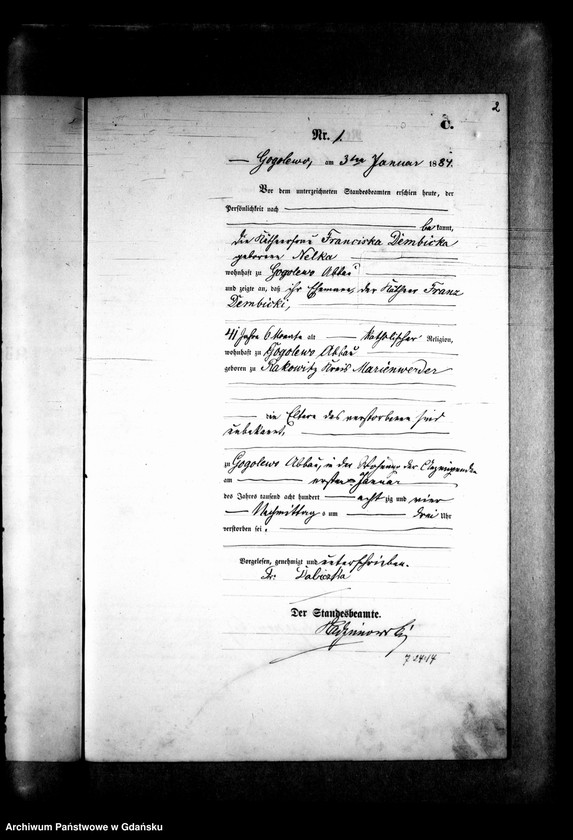 2
C.
Nr. 1.
Gogolewo, am 3ten Januar 1884.
Vor dem unterzeichneten Standesbeamten erschien heute, der
Persönlichkeit nach
bekannt,
die Käthnerfrau Franciska Dembicka
geborene Nelka
wohnhaft zu Gogolewo Abbau
und zeigte an, daß ihr Ehemann, der Käthner Franz
Dembicki,
41 Jahre 6 Monate alt katholischer Religion,
wohnhaft zu Gogolewo Abbau
geboren zu Rakowitz Kreis Marienwerder
die Eltern des verstorbenen sind
unbekannt,
zu Gogolewo Abbau, in der Wohnung der Anzeigenden
am ersten Januar
des Jahres tausend acht hundert achtzig und vier
Nachmittags um drei Uhr
verstorben sei.
Vorgelesen, genehmigt und unterschrieben.
Fr.
Der Standesbeamte.
Archiwum Państwowe w Gdańsku